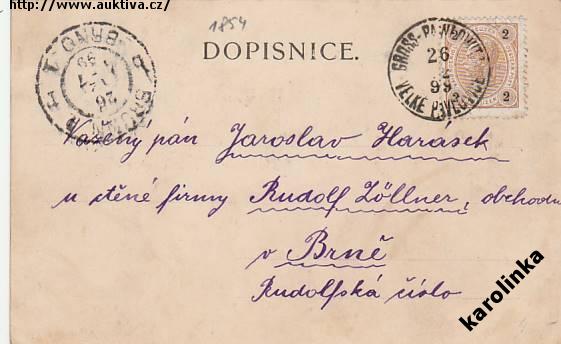 http://www.auktiva.cz/
1854
DOPISNICE.
GROSS-PAWLOWITZ
26
2
99
VELKÉ PAVLOVICE
2
2
BRNO
26
99
Vážený pán Jaroslav Harásek
u ctěné firmy Rudolf Zöllner, obchodu
v Brně
Rudolfská číslo
karolinka